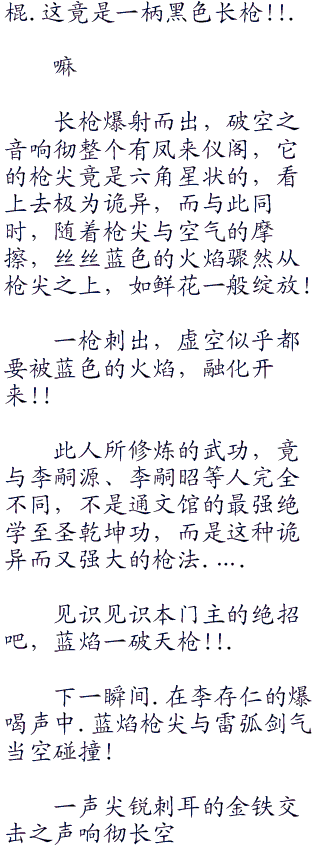 棍.这竟是一柄黑色长枪!!.
嘛
长枪爆射而出，破空之
音响彻整个有凤来仪阁，它
的枪尖竟是六角星状的，看
上去极为诡异，而与此同
时，随着枪尖与空气的摩
擦，丝丝蓝色的火焰骤然从
枪尖之上，如鲜花一般绽放!
一枪刺出，虚空似乎都
要被蓝色的火焰，融化开
来!!
此人所修炼的武功，竟
与李嗣源、李嗣昭等人完全
不同，不是通文馆的最强绝
学至圣乾坤功，而是这种诡
异而又强大的枪法.….
见识见识本门主的绝招
吧，蓝焰一破天枪!!.
下一瞬间.在李存仁的爆
喝声中.蓝焰枪尖与雷弧剑气
当空碰撞!
一声尖锐刺耳的金铁交
击之声响彻长空